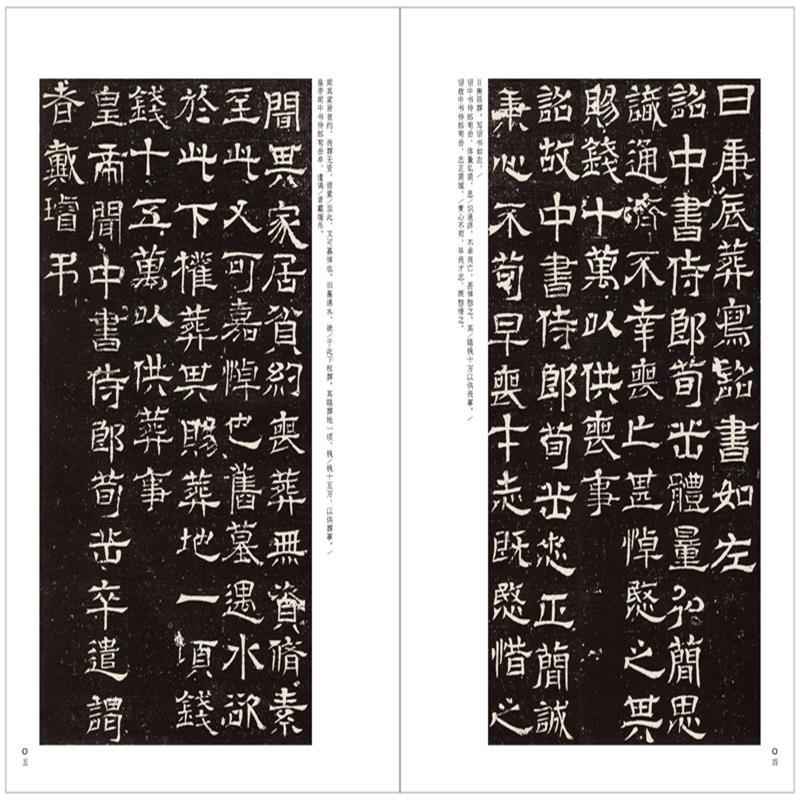 日庚辰葬寫詔書如左
詔中書侍郎荀岳體量弘簡思
識通濟不幸喪亡甚悼愍之其
賜錢十萬以供喪事
詔故中書侍郎荀岳忠正簡誠
秉心不苟早喪才志既愍惜之
日庚辰葬。写诏书如左。/
诏中书侍郎荀岳，体量弘简，思/识通济，不幸丧亡，甚悼愍之。其/赐钱十万以供丧事。/
诏故中书侍郎荀岳，忠正简诚，/秉心不苟，早丧才志，既愍惜之。
〇四
聞其家居貧約喪葬無資脩素
至此又可嘉悼也舊墓遇水欲
於此下權葬其賜葬地一頃錢
錢十五萬以供葬事
皇帝聞中書侍郎荀岳卒遣謁
者戴璿弔
闻其家居贫约，丧葬无资，脩素/至此，又可嘉悼也。旧墓遇水，欲/于此下权葬，其赐葬地一顷，钱/钱十五万，以供葬事。/
皇帝闻中书侍郎荀岳卒，遣谒/者戴璿吊。
〇五